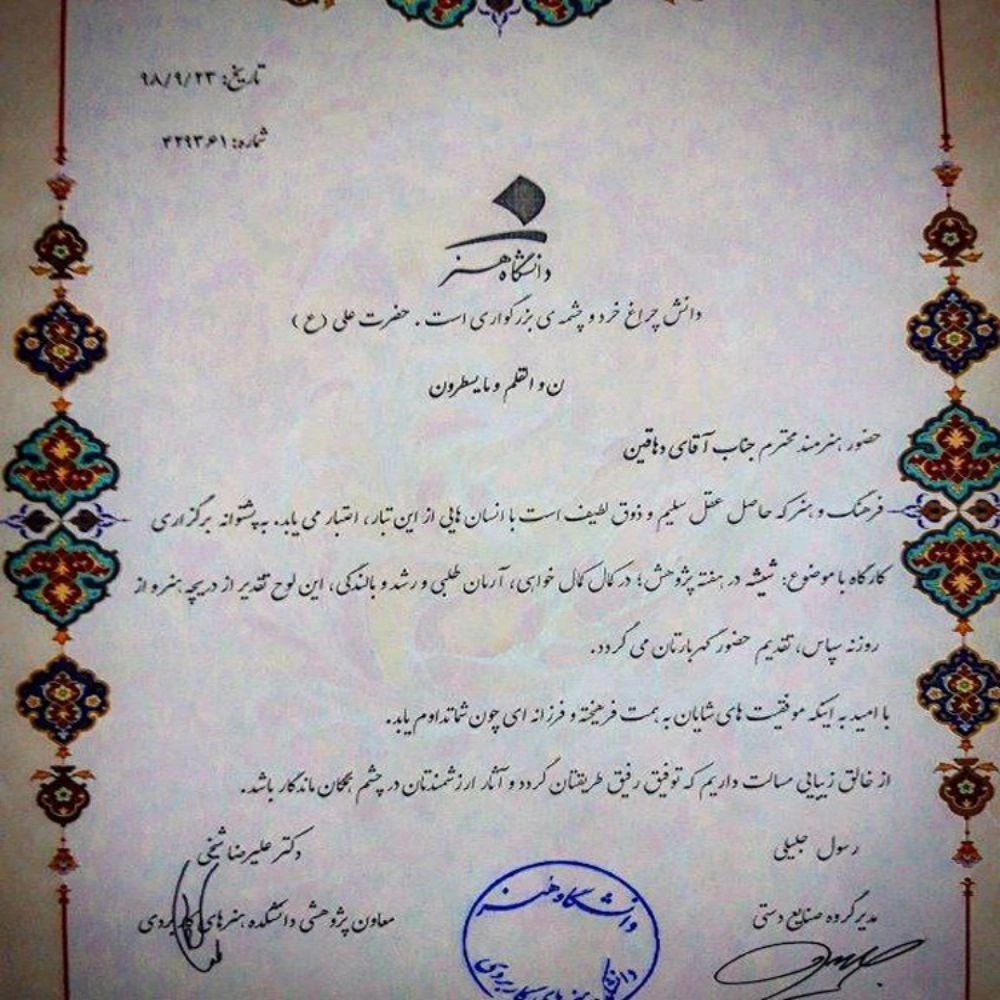 تاریخ: ۹۸/۹/۲۳
شماره: ۴۲۹۳۶۱
دانشگاه هنر
دانش چراغ خرد و چشمه ی بزرگواری است . حضرت علی (ع)
ن و القلم و مایسطرون
حضور هنرمند محترم جناب آقای دهاقین
فرهنگ و هنر که حاصل عقل سلیم و ذوق لطیف است با انسان هایی از این تبار، اعتبار می یابد. به پشتوانه برگزاری
کارگاه با موضوع: شیشه در هفته پژوهش؛ در کمال کمال خواهی، آرمان طلبی و رشد و بالندگی، این لوح تقدیر از دریچه هنر و از
روزنه سپاس، تقدیم حضور گهربارتان می گردد.
با امید به اینکه موفقیت های شایان به همت فرهیخته و فرزانه ای چون شما تداوم یابد.
از خالق زیبایی مسالت داریم که توفیق رفیق طریقتان گردد و آثار ارزشمندتان در چشم همگان ماندگار باشد.
رسول جلیلی
مدیر گروه صنایع دستی
دکتر علیرضا شیخی
معاون پژوهشی دانشکده هنرهای کاربردی
دانشگاه هنر
دانشکده هنرهای کاربردی